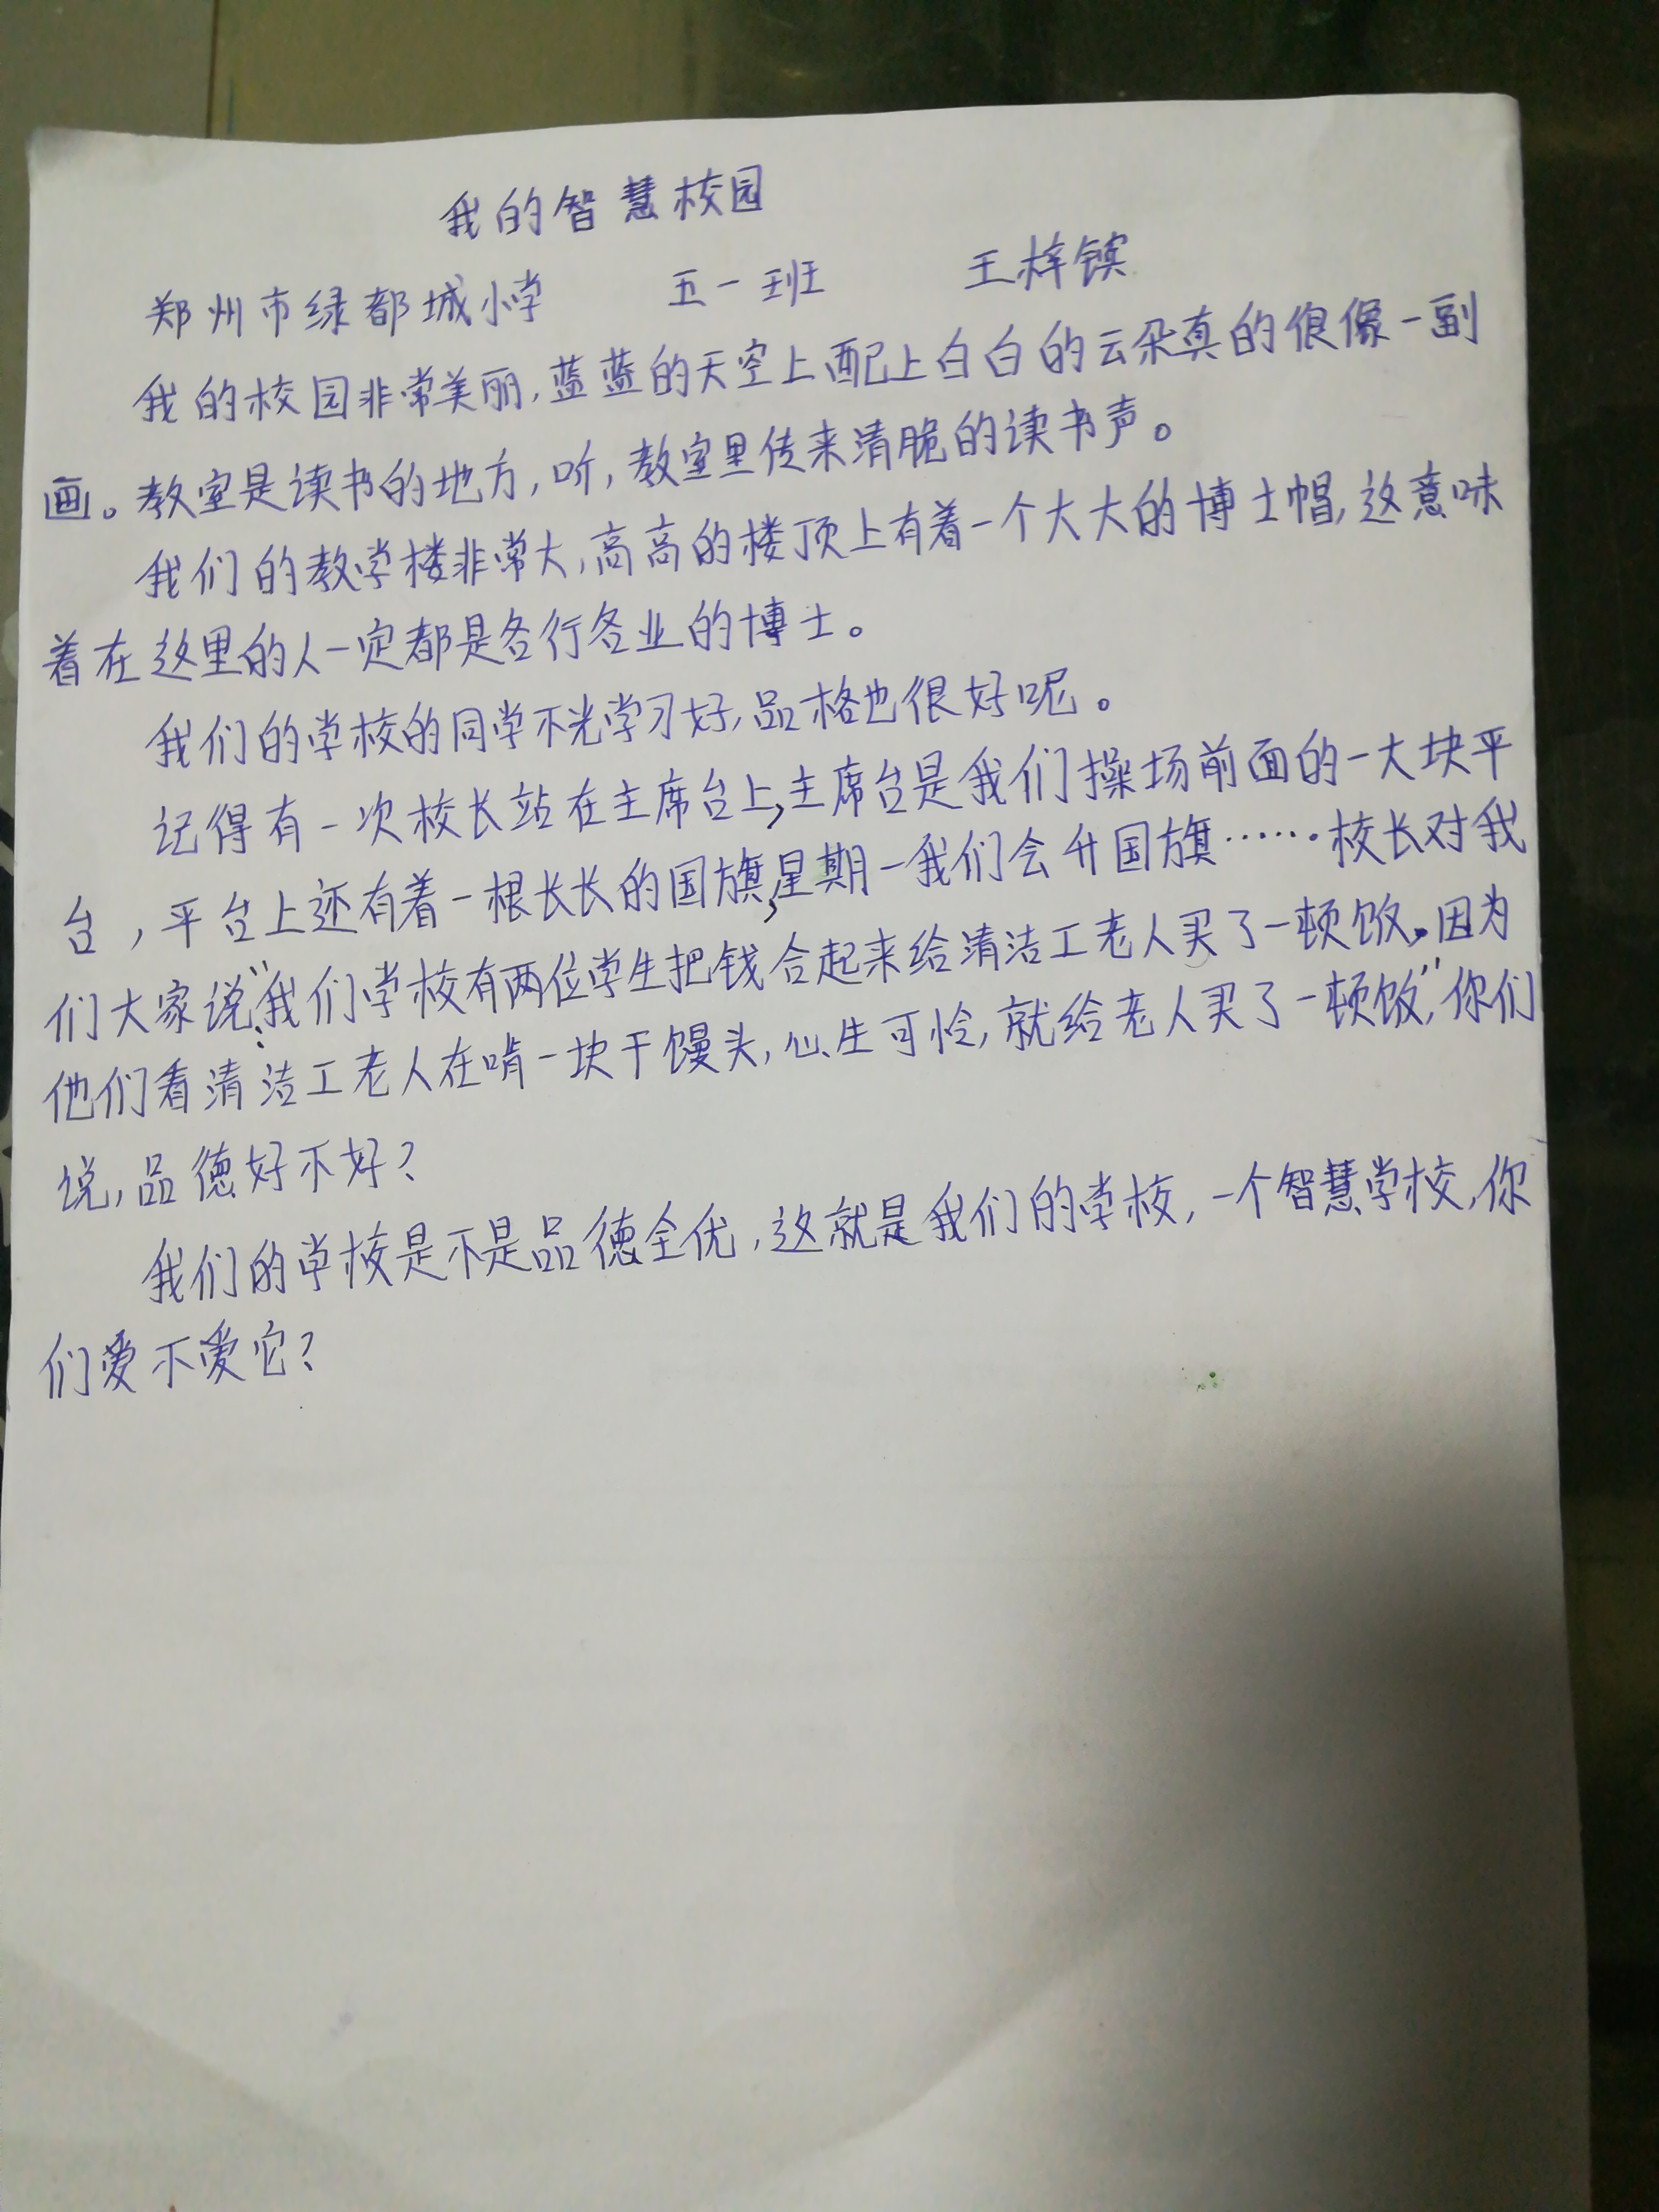 我的智慧校园
郑州市绿都城小学 五一班 王梓镔
我的校园非常美丽,蓝蓝的天空上配上白白的云朵真的很像一副
画。教室是读书的地方,听,教室里传来清脆的读书声。
我们的教学楼非常大,高高的楼顶上有着一个大大的博士帽,这意味
着在这里的人一定都是各行各业的博士。
我们的学校的同学不光学习好,品格也很好呢。
记得有一次校长站在主席台上,主席台是我们操场前面的一大块平
台,平台上还有着一根长长的国旗,星期一我们会升国旗……校长对我
们大家说:“我们学校有两位学生把钱合起来给清洁工老人买了一顿饭。因为
他们看清洁工老人在啃一块干馒头,心生可怜,就给老人买了一顿饭”,你们
说,品德好不好?
我们的学校是不是品德全优,这就是我们的学校,一个智慧学校,你
们爱不爱它?